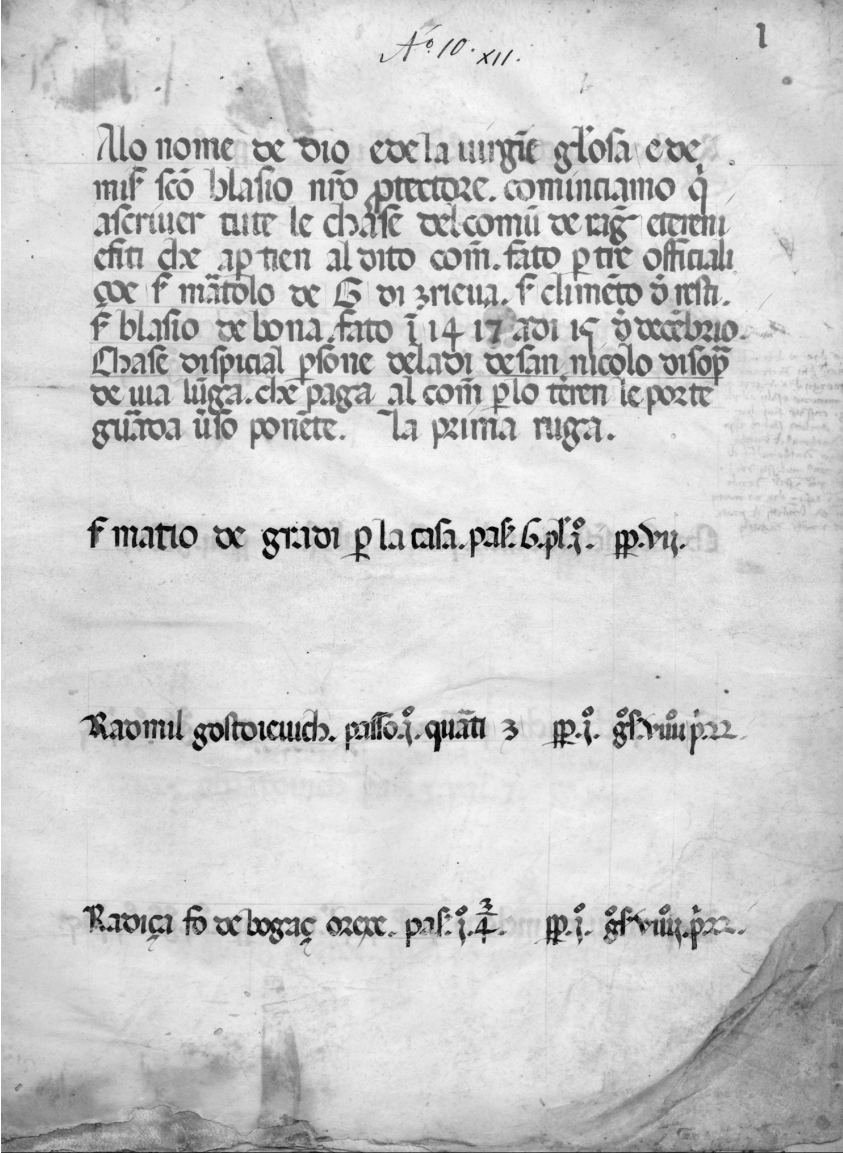 Nº 10. XII.
1
Alo nome de dio e de la uirgīe gl'osa e de
mis̄ sc̄o blasio nr̄o ꝓtectore. cominciamo q̄
ascriuer tute le chase del comū de rag̃ e tereni
efiti che apꝑtien al dito com̄. fato ꝑ tre officiali
çoe s̄ mātolo de G di zrieua. s̄ climēto d̄ resti.
s̄ blasio de bona. fato ī 1417 adi 15 d̄ decēbrio.
Chase dispicial ꝑsone deladi de san nicolo disoꝑ
de uia lūga. che paga al com̄ ꝑlo teren le porte
guarda ūso ponēte. La prima ruga.
s̄ matio de gradi ꝑ la casa. pas̄. 6. pl̄. j̊. ꝑꝑ. vij.
Radmil gostoieuich. passo. j̊. quāti 3 ꝑꝑ. j̊. g̊s̄. viiij p. 22.
Radiça fo de bogaç orexe. pas̄. j̊. 3/4. ꝑꝑ. j̊. g̊s̄. viiij. p. 22.